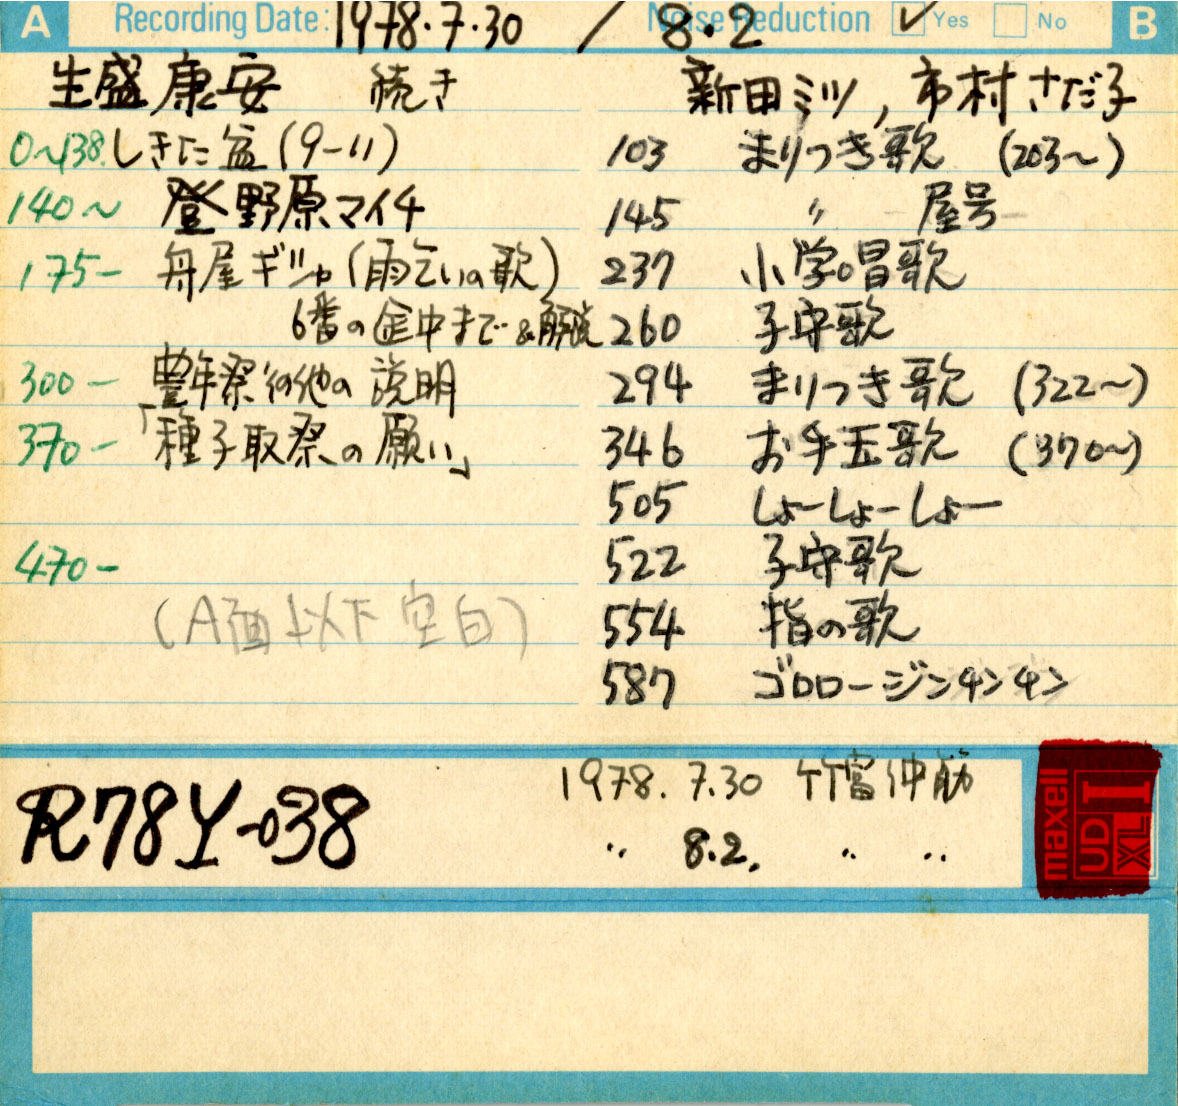 A Recording Date: 1978.7.30 / 8.2 Noise Reduction ✓ Yes No B
生盛康安 続き
0~138. しきた盆(9-11)
140~ 登野原マイチ
175- 舟屋ギシャ(雨乞いの歌)
6番の途中まで&解説
300- 豊年祭その他の説明
370- 「種子取祭の願い」
470-
(A面以下空白)
新田ミツ, 市村さだ子
103 まりつき歌 (203~)
145 〃 屋号
237 小学唱歌
260 子守歌
294 まりつき歌 (322~)
346 お手玉歌 (370~)
505 しょーしょーしょー
522 子守歌
554 指の歌
587 ゴロロージンチンチン
R78Y-038
1978. 7.30 竹富仲筋
〃 8.2. 〃 〃
maxell
UD
XL I